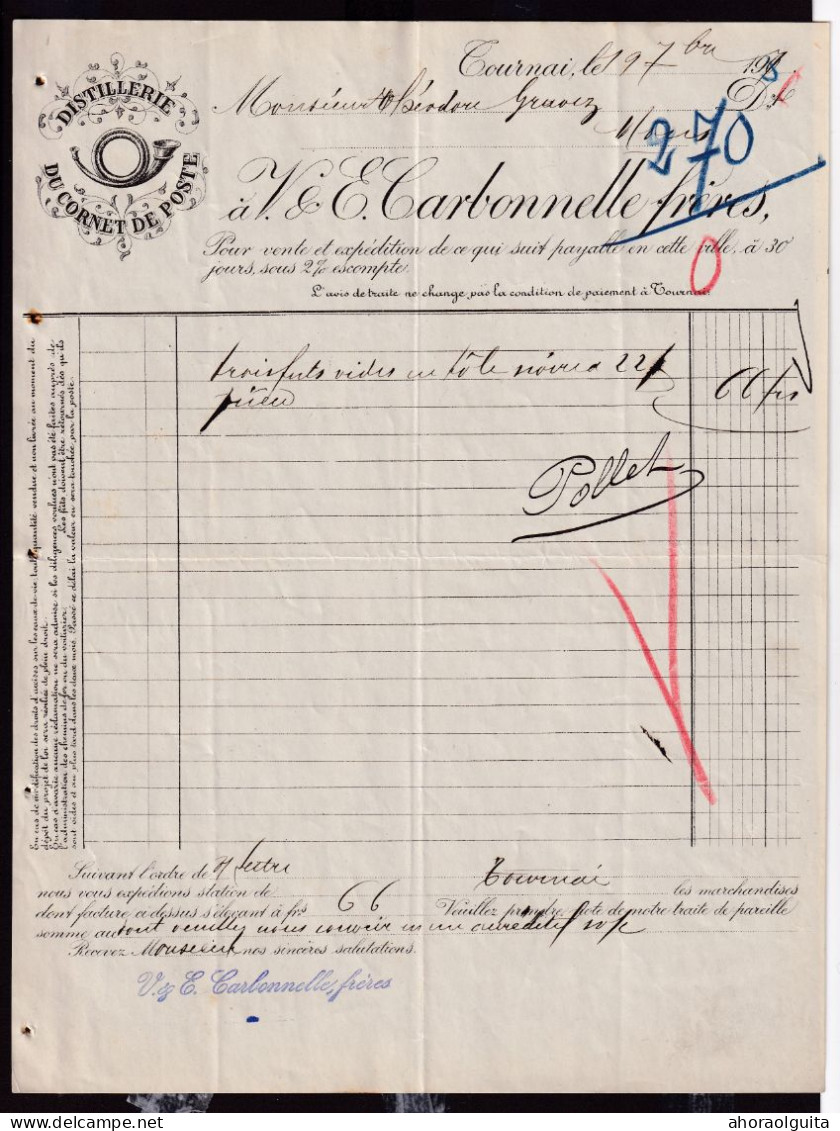 DISTILLERIE
DU CORNET DE POSTE
Tournai, le 19 7bre 190
Monsieur Théodore Gravez Dr
Mons
270
à V. & E. Carbonnelle frères,
Pour vente et expédition de ce qui suit payable en cette ville, à 30
jours, sous 2% escompte.
L'avis de traite ne change pas la condition de paiement à Tournai.
0
En cas de modification des droits d'accises sur les eaux-de-vie toute quantité vendue et non livrée au moment du
dépôt du projet de loi sera résiliée de plein droit.
En cas d'avarie aucune réclamation ne sera admise si les diligences voulues n'ont pas été faites auprès de
l'administration des chemins de fer ou du voiturier.
Les fûts doivent être retournés dès qu'ils
sont vides et au plus tard dans les deux mois. Passé ce délai la valeur en sera touchée par la poste.
trois futs vides en tôle à 22 f
pièce 66 frs
Pollet
Suivant l'ordre de Mr lettre
nous vous expédions station de Tournai les marchandises
dont facture ci-dessus s'élevant à frs 66 Veuillez prendre note de notre traite de pareille
somme au dont veuillez nous couvrir en un
Recevez Monsieur nos sincères salutations.
V. & E. Carbonnelle, frères
ahoraolguita